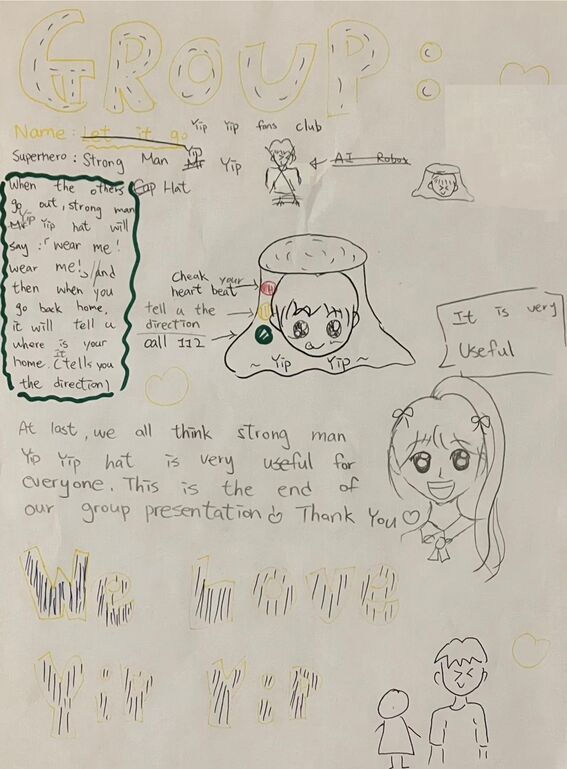 GROUP:
Name: Let it go Yip Yip fans club
Superhero: Strong Man Mr Yip Yip AI Robox
Cap Hat
When the others
go out, strong man
Mr Yip Yip hat will
say :「wear me!
wear me!」And
then when you
go back home,
it will tell u
where is your
home. (It tells you
the direction)
Cheak your
heart beat
tell u the
direction
call 112
~ Yip Yip ~
It is very
Useful
At last, we all think strong man
Yip Yip hat is very useful for
everyone. This is the end of
our group presentation Thank You
We Love
Yip Yip